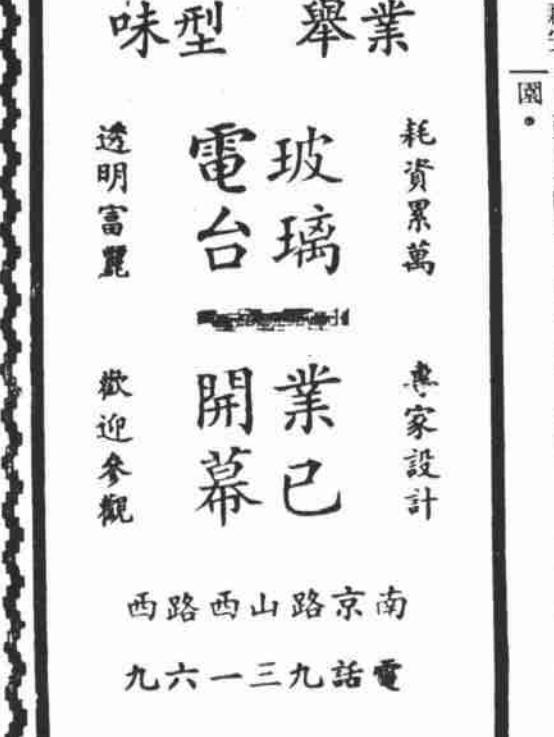 園。
業舉 型味
耗資累萬
玻璃
電台
透明富麗
專家設計
業已
開幕
歡迎參觀
南京路山西路西
電話九三一六九